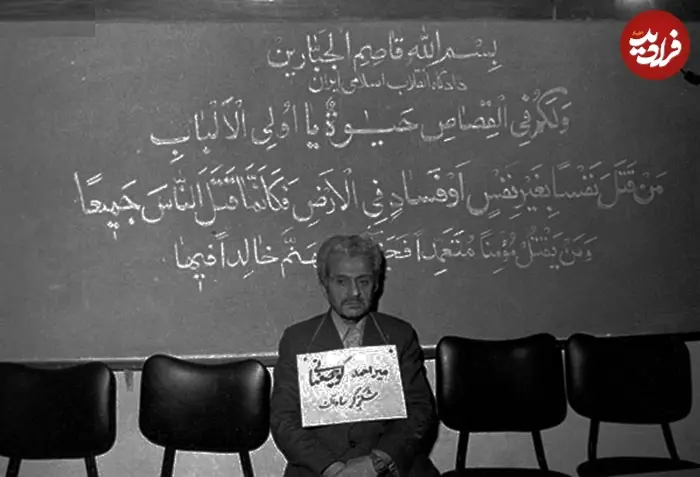 بِسْمِ اللهِ قاصِمِ الْجَبّارینَ
دادگاه انقلاب اسلامی ایران
وَلَكُمْ فِی الْقِصَاصِ حَیٰوةٌ یا اُولِی الْأَلْبَابِ
مَنْ قَتَلَ نَفْسًا بِغَیْرِ نَفْسٍ اَوْ فَسَادٍ فِی الْاَرْضِ فَكَاَنَّمَا قَتَلَ النَّاسَ جَمِیعًا
وَمَنْ یَقْتُلْ مُؤْمِنًا مُتَعَمِّدًا خَالِدًا فِیهَا
میراحمد کوچصفهانی
شکنجه‌گر ساواک
فرادید